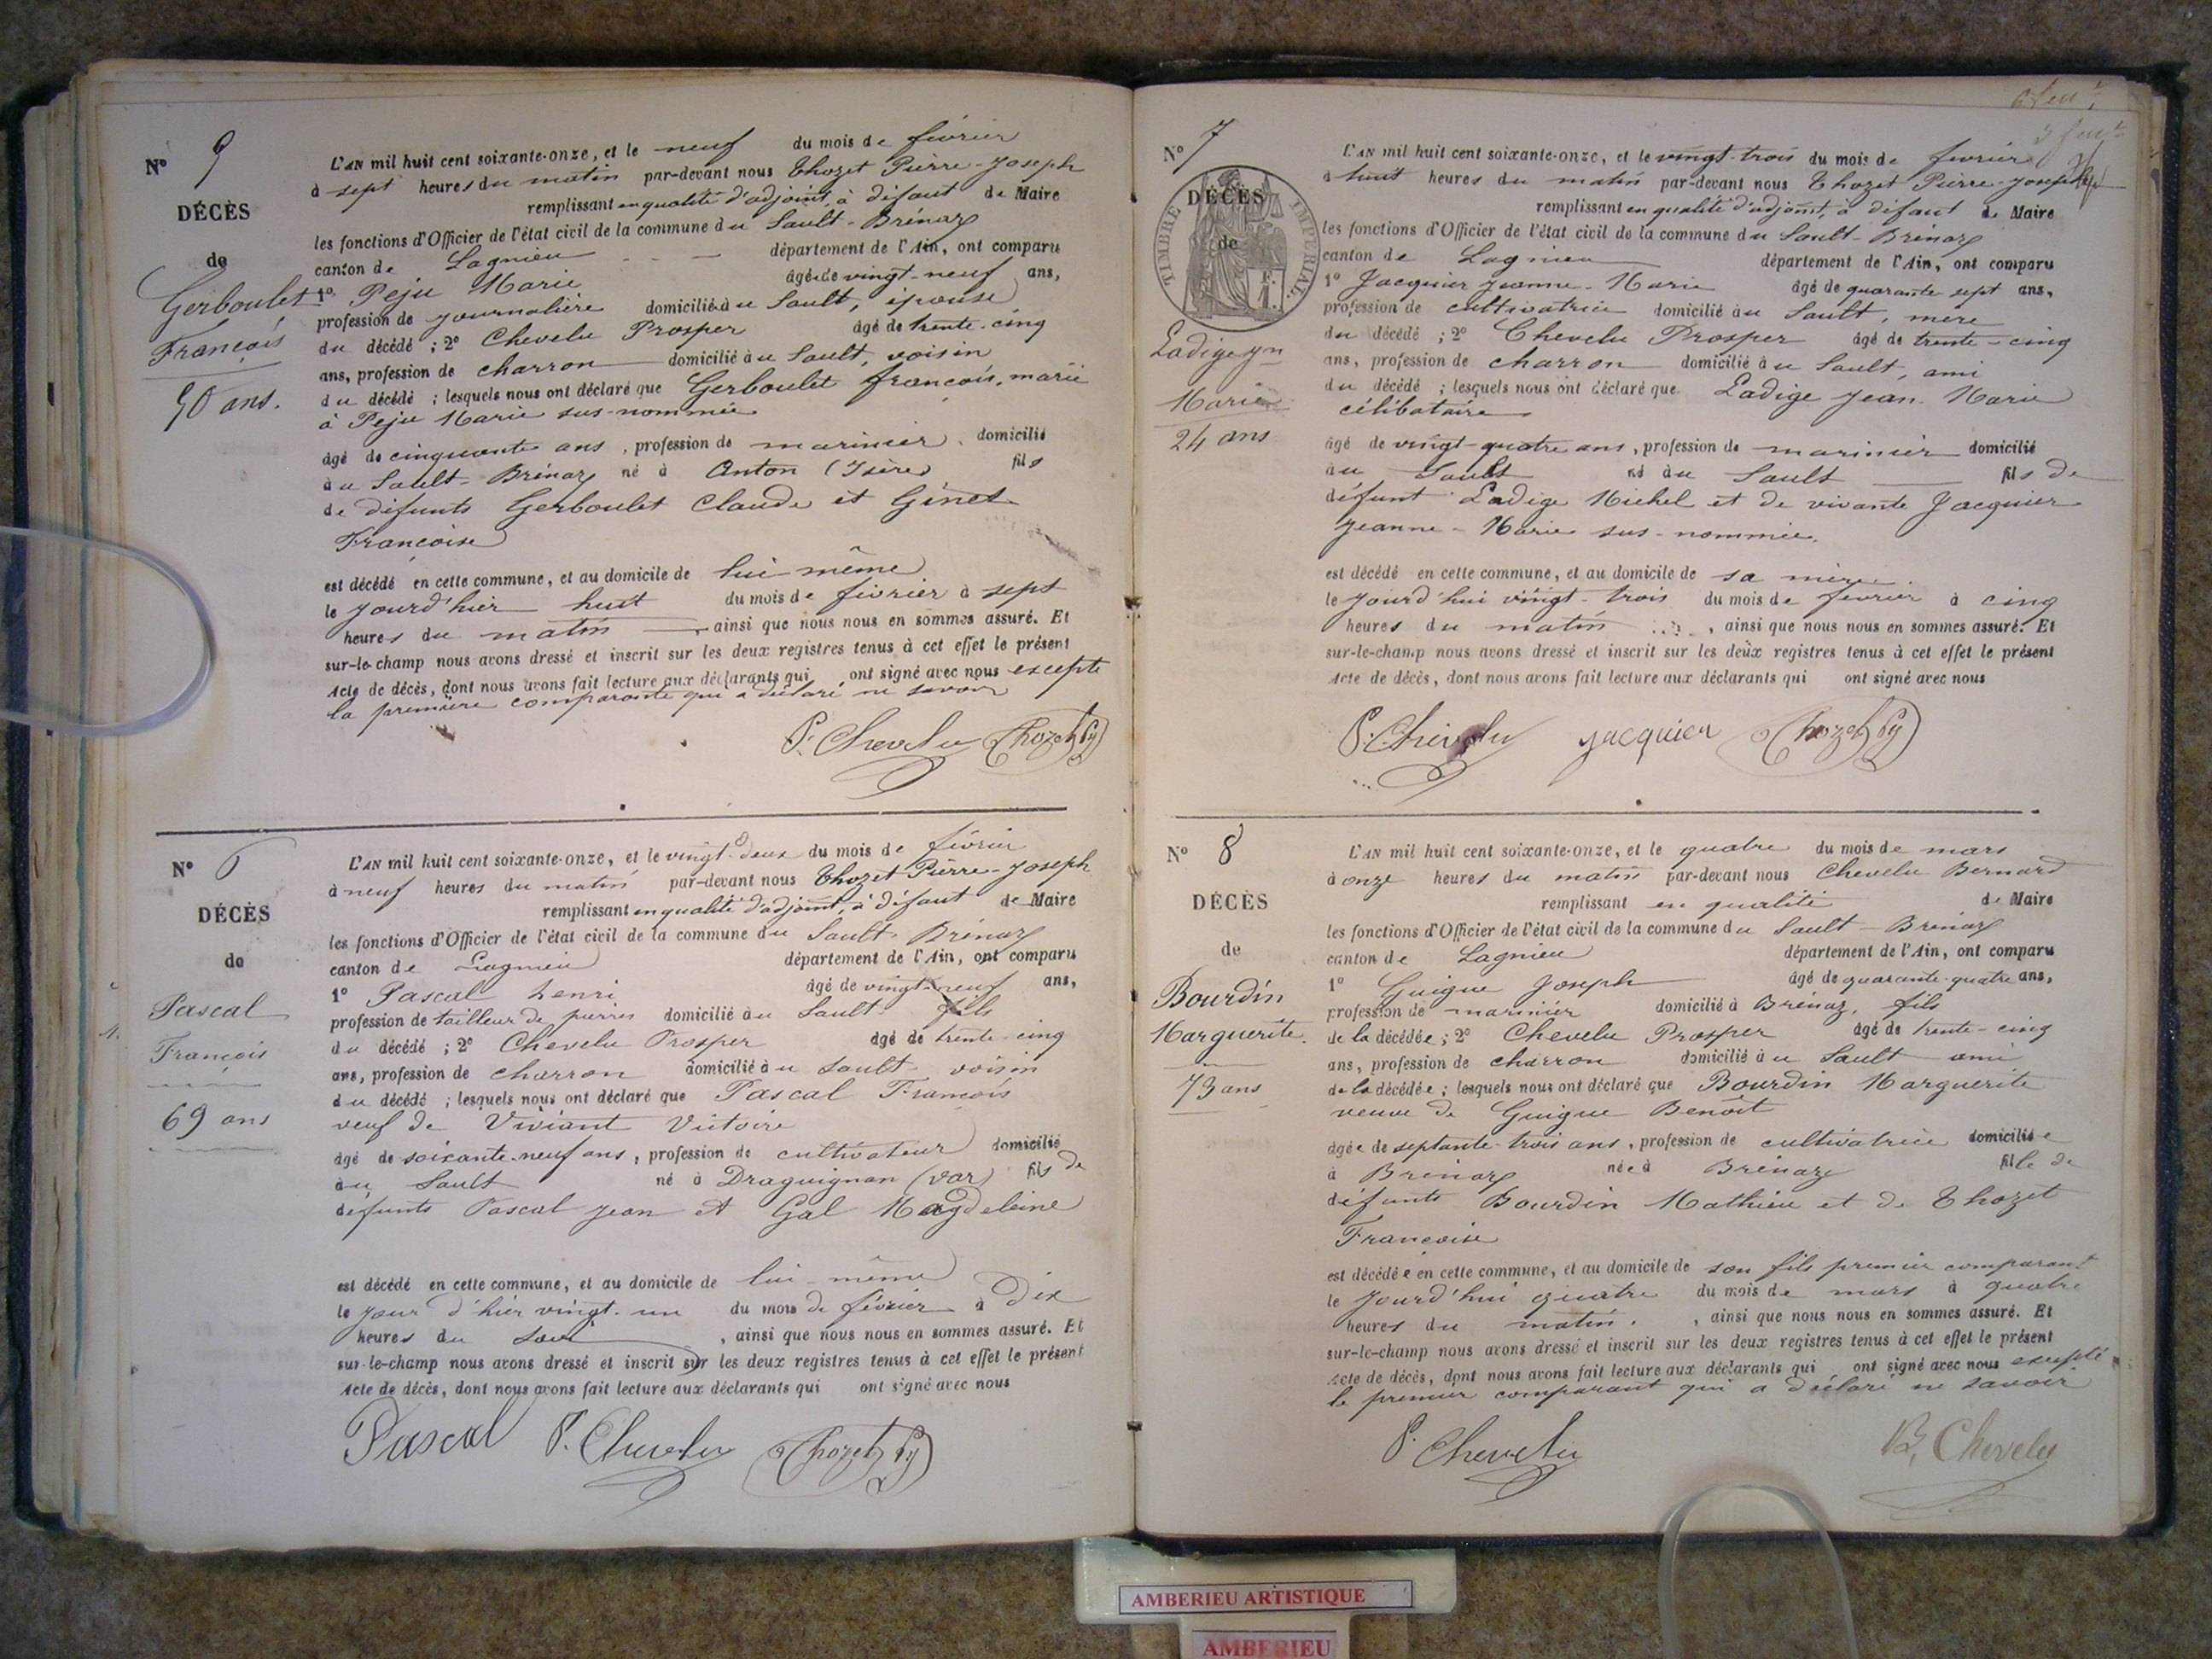 N° 5
DÉCÈS
de
Gerboulet
François
50 ans.
L'AN mil huit cent soixante-onze, et le neuf du mois de février
à sept heures du matin par-devant nous Thozet Pierre-Joseph
remplissant en qualité d'adjoint, à défaut de Maire
les fonctions d'Officier de l'état civil de la commune du Sault-Brénaz
canton de Lagnieu département de l'Ain, ont comparu
1° Peju Marie âgée de vingt-neuf ans,
profession de journalière domiciliée au Sault, épouse
du décédé ; 2° Chevelu Prosper âgé de trente-cinq
ans, profession de charron domicilié au Sault, voisin
du décédé ; lesquels nous ont déclaré que Gerboulet françois, marié
à Peju Marie sus-nommée
âgé de cinquante ans, profession de marinier, domicilié
au Sault-Brénaz né à Anton (Isère) fils
de défunts Gerboulet Claude et Ginet
Françoise
est décédé en cette commune, et au domicile de lui même
le jourd'hier huit du mois de février à sept
heures du matin, ainsi que nous nous en sommes assuré. Et
sur-le-champ nous avons dressé et inscrit sur les deux registres tenus à cet effet le présent
Acte de décès, dont nous avons fait lecture aux déclarants qui ont signé avec nous excepté
la première comparante qui a déclaré ne savoir
P. Chevelu Thozet Pj
N° 6
DÉCÈS
de
Pascal
François
69 ans
L'AN mil huit cent soixante-onze, et le vingt-deux du mois de février
à neuf heures du matin par-devant nous Thozet Pierre-Joseph
remplissant en qualité d'adjoint, à défaut de Maire
les fonctions d'Officier de l'état civil de la commune du Sault-Brénaz
canton de Lagnieu département de l'Ain, ont comparu
1° Pascal henri âgé de vingt-neuf ans,
profession de tailleur de pierres domicilié au Sault fils
du décédé ; 2° Chevelu Prosper âgé de trente-cinq
ans, profession de charron domicilié au Sault voisin
du décédé ; lesquels nous ont déclaré que Pascal François
veuf de Viviant Victoire
âgé de soixante-neuf ans, profession de cultivateur domicilié
au Sault né à Draguignan (var) fils de
défunts Pascal jean et Gal Magdeleine
est décédé en cette commune, et au domicile de lui-même
le jour d'hier vingt-un du mois de février à Dix
heures du soir, ainsi que nous nous en sommes assuré. Et
sur-le-champ nous avons dressé et inscrit sur les deux registres tenus à cet effet le présent
Acte de décès, dont nous avons fait lecture aux déclarants qui ont signé avec nous
Pascal P. Chevelu Thozet Pj
N° 7
TIMBRE IMPERIAL
DÉCÈS
de
F.
1.
Marie
24 ans
L'AN mil huit cent soixante-onze, et le vingt-trois du mois de fevrier
à huit heures du matin par-devant nous Thozet Pierre-joseph
remplissant en qualité d'adjoint, à défaut de Maire
les fonctions d'Officier de l'état civil de la commune du Sault-Brénaz
canton de Lagnieu département de l'Ain, ont comparu
1° Jacquier jeanne-Marie âgé de quarante sept ans,
profession de cultivatrice domicilié au Sault, mère
du décédé ; 2° Chevelu Prosper âgé de trente-cinq
ans, profession de charron domicilié au Sault, ami
du décédé ; lesquels nous ont déclaré que Ladige jean-Marie
célibataire
âgé de vingt-quatre ans, profession de marinier domicilié
au Sault né au Sault fils de
défunt Ladige Michel et de vivante Jacquier
jeanne-Marie sus-nommée.
est décédé en cette commune, et au domicile de sa mère.
le jourd'hui vingt-trois du mois de fevrier à cinq
heures du matin, ainsi que nous nous en sommes assuré. Et
sur-le-champ nous avons dressé et inscrit sur les deux registres tenus à cet effet le présent
Acte de décès, dont nous avons fait lecture aux déclarants qui ont signé avec nous
P. Chevelu jacquier Thozet Pj
N° 8
DÉCÈS
de
Bourdin
Marguerite.
73 ans
L'AN mil huit cent soixante-onze, et le quatre du mois de mars
à onze heures du matin par-devant nous Chevelu Bernard
remplissant en qualité de Maire
les fonctions d'Officier de l'état civil de la commune du Sault-Brénaz
canton de Lagnieu département de l'Ain, ont comparu
1° Guigue Joseph âgé de quarante-quatre ans,
profession de marinier domicilié à Brénaz, fils
de la décédée ; 2° Chevelu Prosper âgé de trente-cinq
ans, profession de charron domicilié au Sault ami
de la décédée ; lesquels nous ont déclaré que Bourdin Marguerite
veuve de Guigue Benoît
âgée de septante-trois ans, profession de cultivatrice domiciliée
à Brénaz née à Brénaz fille de
défunts Bourdin Mathieu et de Thozet
Françoise
est décédée en cette commune, et au domicile de son fils premier comparant
le jourd'hui quatre du mois de mars à quatre
heures du matin, ainsi que nous nous en sommes assuré. Et
sur-le-champ nous avons dressé et inscrit sur les deux registres tenus à cet effet le présent
Acte de décès, dont nous avons fait lecture aux déclarants qui ont signé avec nous excepté
le premier comparant qui a déclaré ne savoir
P. Chevelu B. Chevelu
AMBERIEU ARTISTIQUE
AMBERIEU